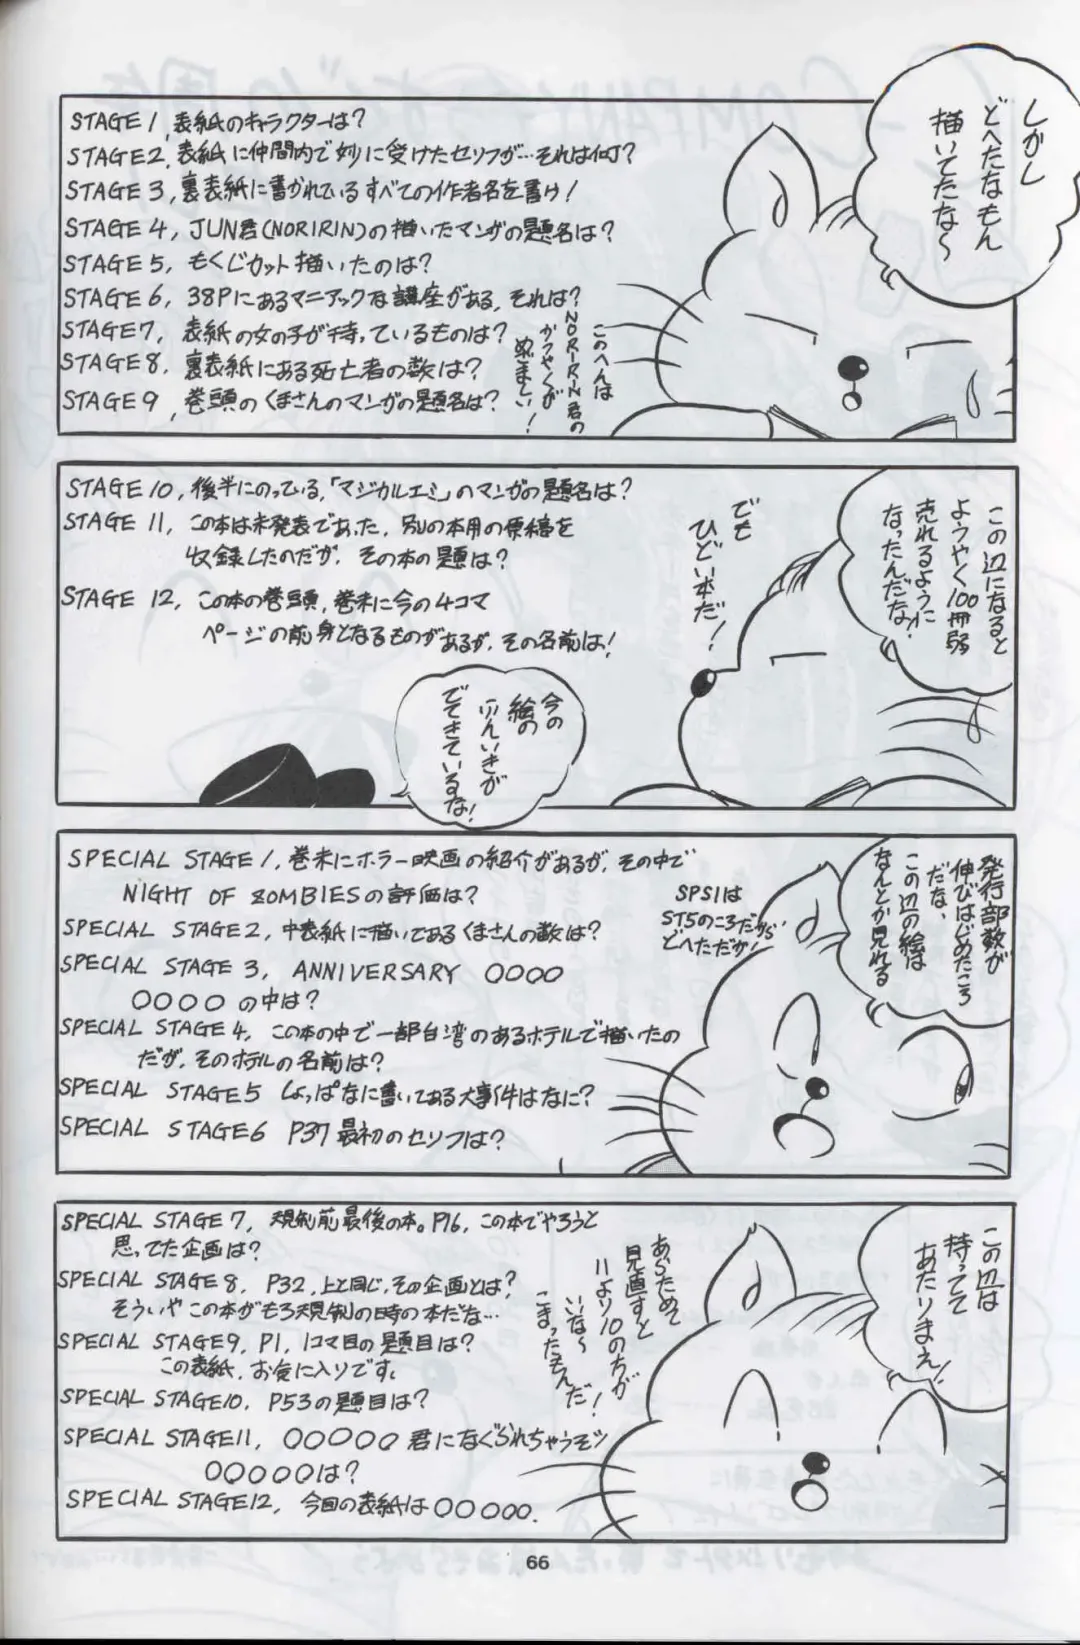 しかし
どへたなもん
描いてたな〜
STAGE 1, 表紙のキャラクターは?
STAGE 2, 表紙に仲間内で妙に受けたセリフが…それは何?
STAGE 3, 裏表紙に書かれているすべての作者名を書け!
STAGE 4, JUN君(NORIRIN)の描いたマンガの題名は?
STAGE 5, もくじカット描いたのは?
STAGE 6, 38Pにあるマニアックな講座がある, それは?
STAGE 7, 表紙の女の子が持っているものは?
STAGE 8, 裏表紙にある死亡者の数は?
STAGE 9, 巻頭のくまさんのマンガの題名は?
このへんは
NORIRIN君の
かつやくが
めざましい!
この辺になると
ようやく100冊弱
売れるように
なったんだな!
でも
ひどい本だ!
STAGE 10, 後半にのっている,「マジカルエミ」のマンガの題名は?
STAGE 11, この本は未発表であった, 別の本用の原稿を
収録したのだが, その本の題は?
STAGE 12, この本の巻頭, 巻末に今の4コマ
ページの前身となるものがあるが, その名前は!
今の
絵の
ふんいきが
でてきているな!
発行部数が
伸びはじめたころ
だな、
この辺の絵は
なんとか見れる
SPECIAL STAGE 1, 巻末にホラー映画の紹介があるが, その中で
NIGHT OF ZOMBIESの評価は?
SPECIAL STAGE 2, 中表紙に描いてあるくまさんの数は?
SPECIAL STAGE 3, ANNIVERSARY ○○○○
○○○○の中は?
SPECIAL STAGE 4, この本の中で一部台湾のあるホテルで描いたの
だが, そのホテルの名前は?
SPECIAL STAGE 5 しょっぱなに書いてある大事件はなに?
SPECIAL STAGE 6 P37最初のセリフは?
SPS1は
ST5のころだから
どへただが!
この辺は
持ってて
あたりまえ!
SPECIAL STAGE 7, 規制前最後の本。P16, この本でやろうと
思ってた企画は?
SPECIAL STAGE 8, P32, 上と同じ, その企画とは?
そういや この本がもろ規制の時の本だな…
SPECIAL STAGE 9, P1, 1コマ目の題目は?
この表紙, お気に入りです。
SPECIAL STAGE 10, P53の題目は?
SPECIAL STAGE 11, ○○○○○君になぐられちゃうぞッ
○○○○○は?
SPECIAL STAGE 12, 今回の表紙は○○○○○.
あらためて
見直すと
11より10のちが
いいな〜
こまったもんだ!
66